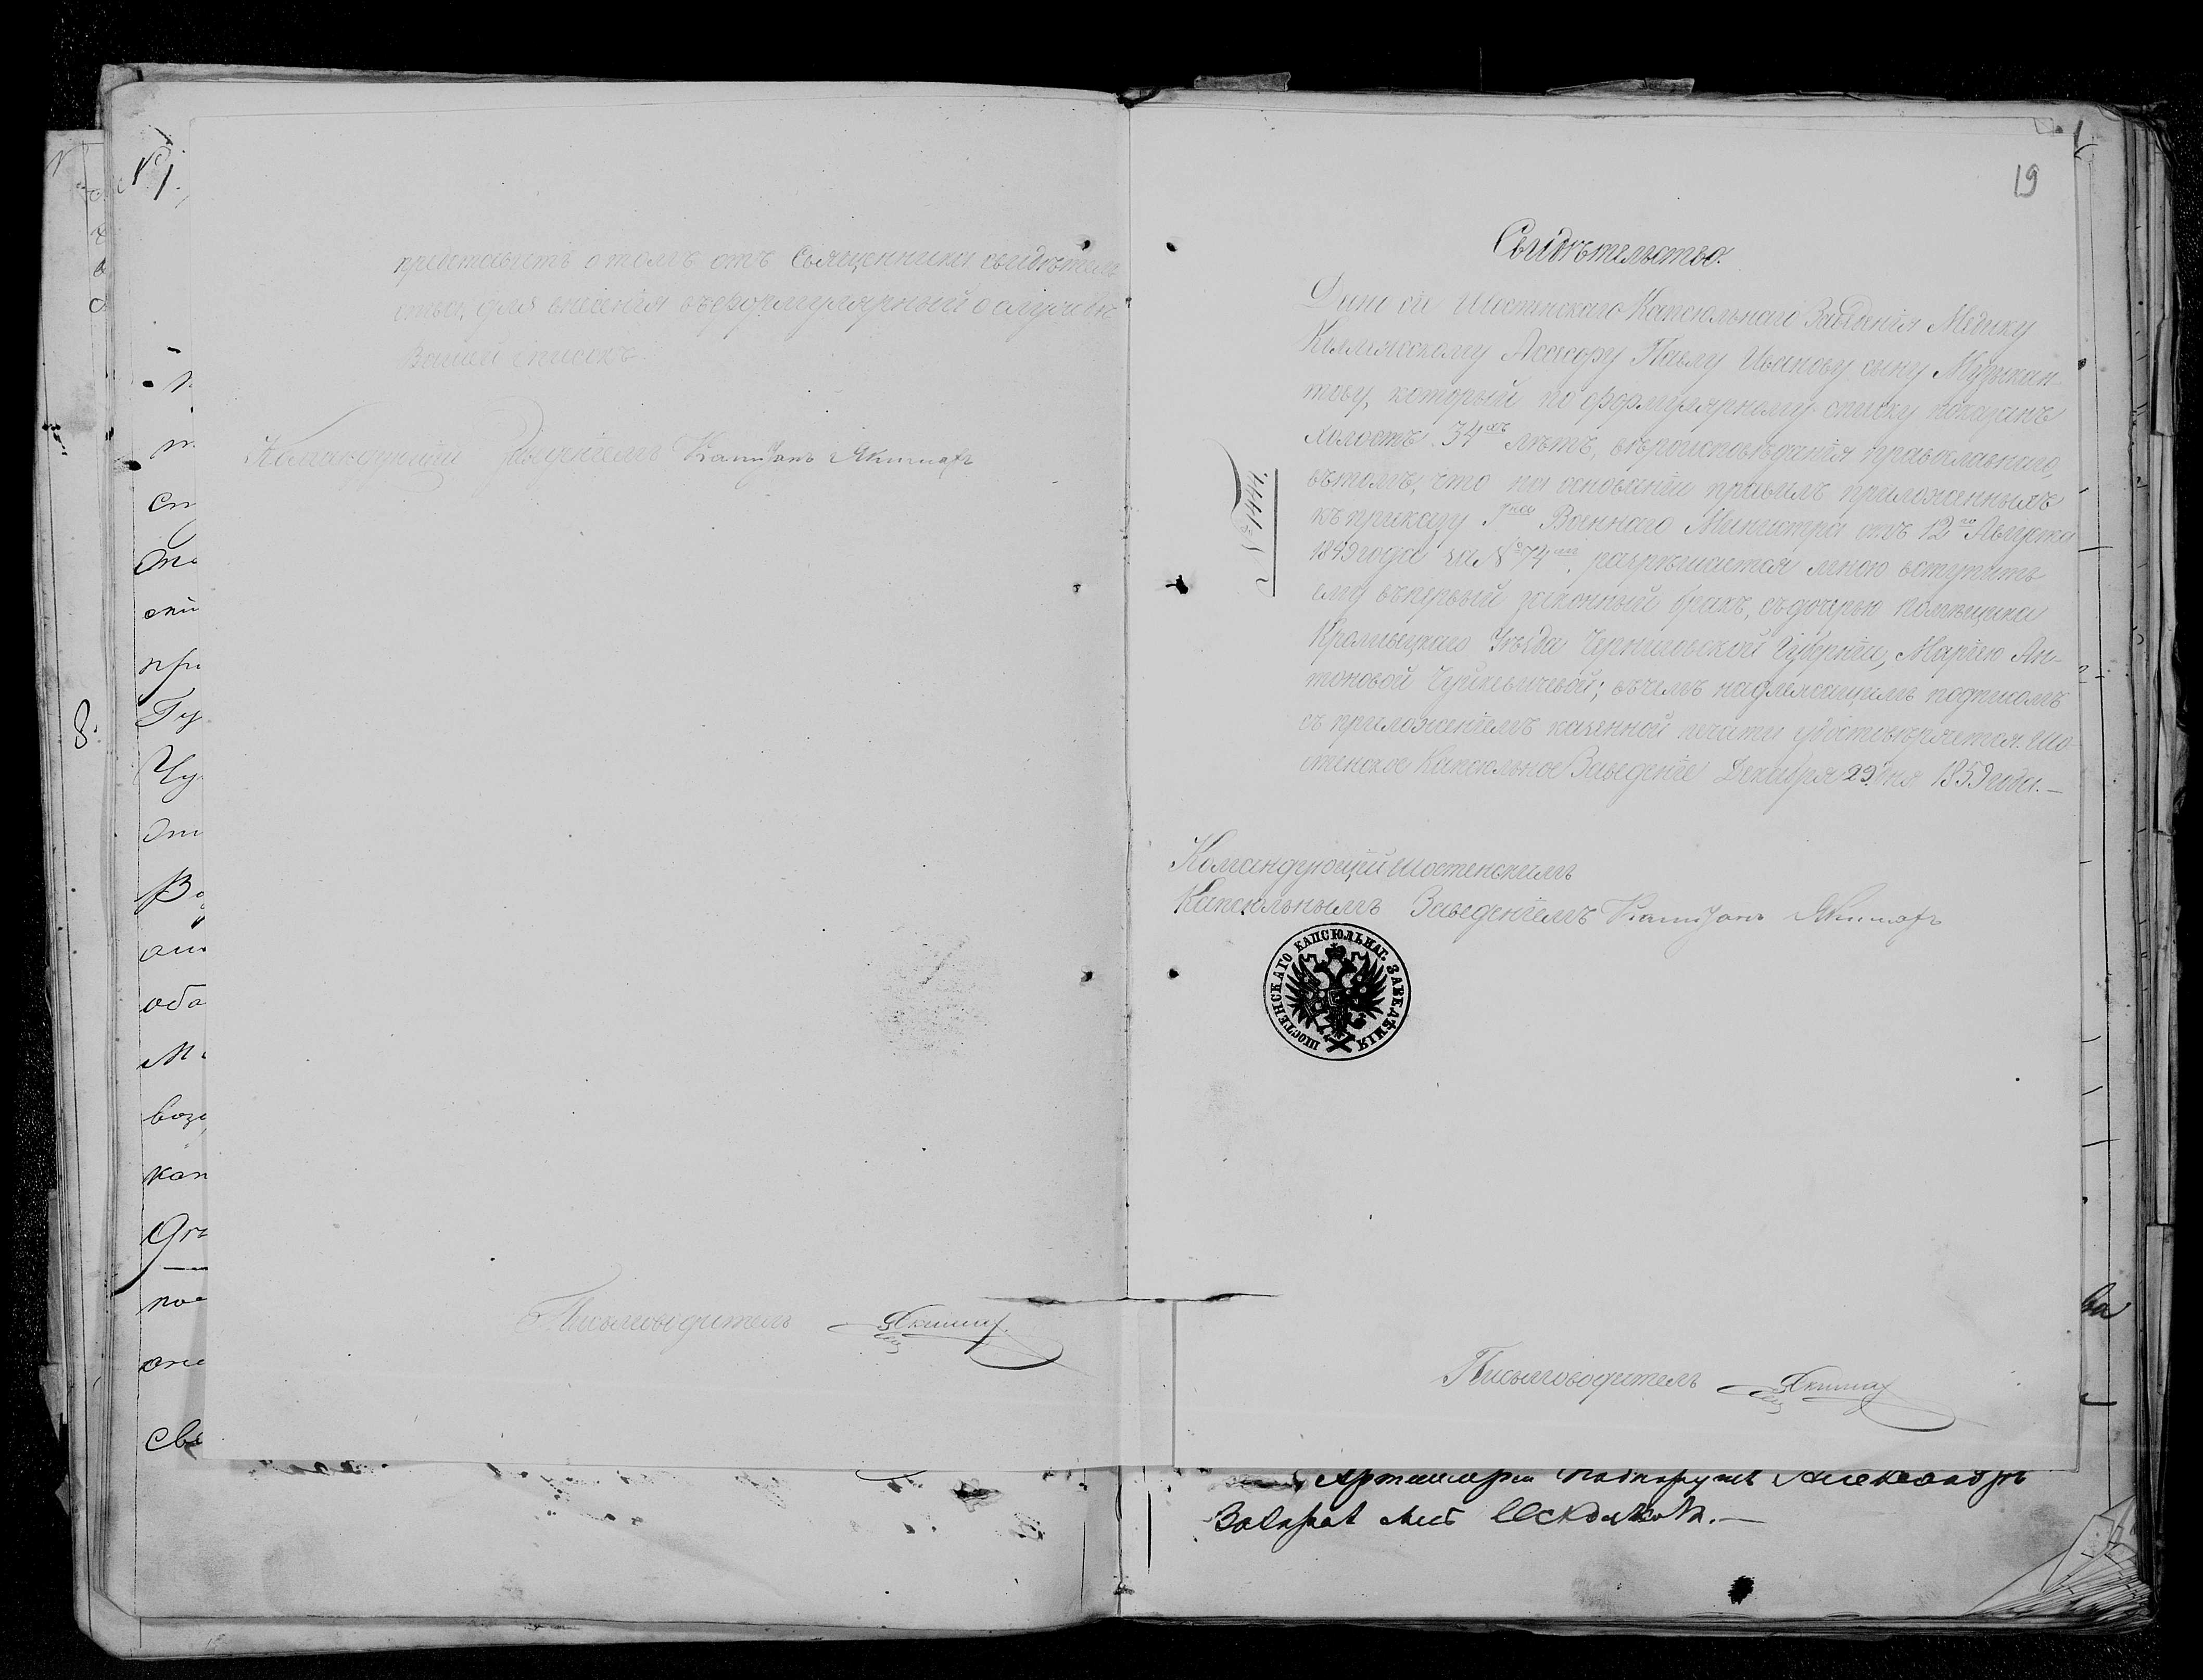 № 1.
представить о томъ отъ Священника свидѣтель
ство, для внесенія въ формулярный о службѣ
Вашей списокъ.
Командующій Заведеніемъ Капитанъ Якимахъ
Письмоводитель
8.
19
Свидѣтельство.
Дано сіе Шостенскаго Капсюльнаго Заведенія Медику
Коллежскому Ассесору Павлу Иванову сыну Музыкан-
тову, который по формулярному списку показанъ
холостъ 34хъ лѣтъ, вѣроисповѣданія православнаго,
въ томъ, что на основаніи правилъ приложенныхъ
къ приказу Гна Военнаго Министра отъ 12го Августа
1849 года за № 74мъ, разрѣшается мною вступить
ему въ первый законный бракъ, съ дочерью помѣщика
Кролевецкаго Уѣзда Черниговской Губерніи, Маріею Ан-
тоновой Чуйкевичевой; въ чемъ надлежащимъ подписомъ
съ приложеніемъ казенной печати удостовѣряется. Шо-
стенское Капсюльное Заведеніе Декабря 29 дня 1859 года.—
№ 1444.
Командующій Шостенскимъ
Капсюльнымъ Заведеніемъ Капитанъ Якимахъ
ШОСТЕНСКАГО КАПСЮЛЬНАГ ЗАВЕДѢНІЯ
Письмоводитель
Артиллеріи Подпоручикъ Александръ